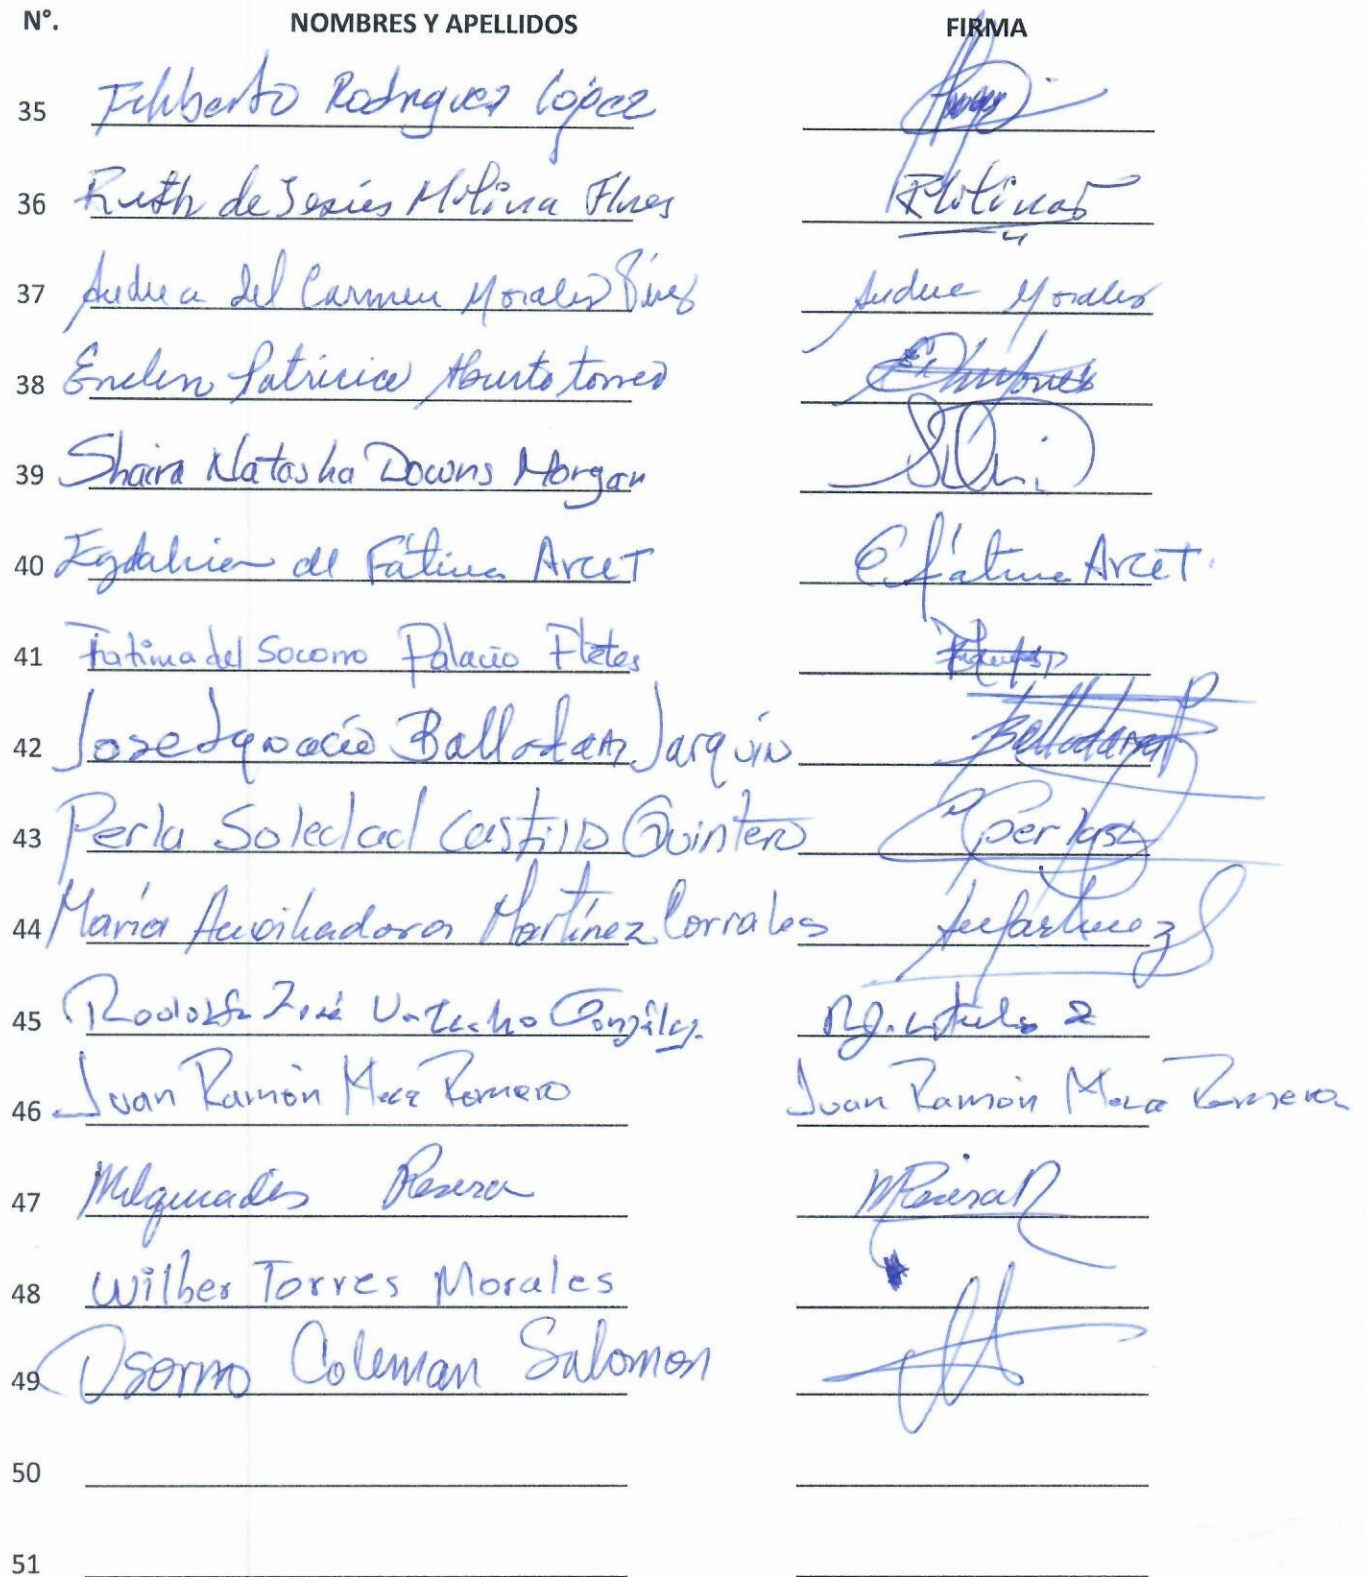 N°. NOMBRES Y APELLIDOS FIRMA
35 Filiberto Rodriguez López
36 Ruth de Jesús Molina Flores
37 del Carmen Morales Andrea Morales
38 Patricia Aburto torres
39 Shaira Natasha Downs Morgan
40 de Fátima Arcet E. fátima Arcet.
41 Fatima del Socorro Palacio Fletes
42 Jose Ignacio Balladarez Jarquín
43 Perla Soledad Castillo Quintero
44 María Auxiliadora Martínez Corrales
45 Rodolfo José González.
46 Juan Ramón Romero Juan Ramón Romero
47
48 Wilber Torres Morales
49 Osorno Coleman Salomon
50
51